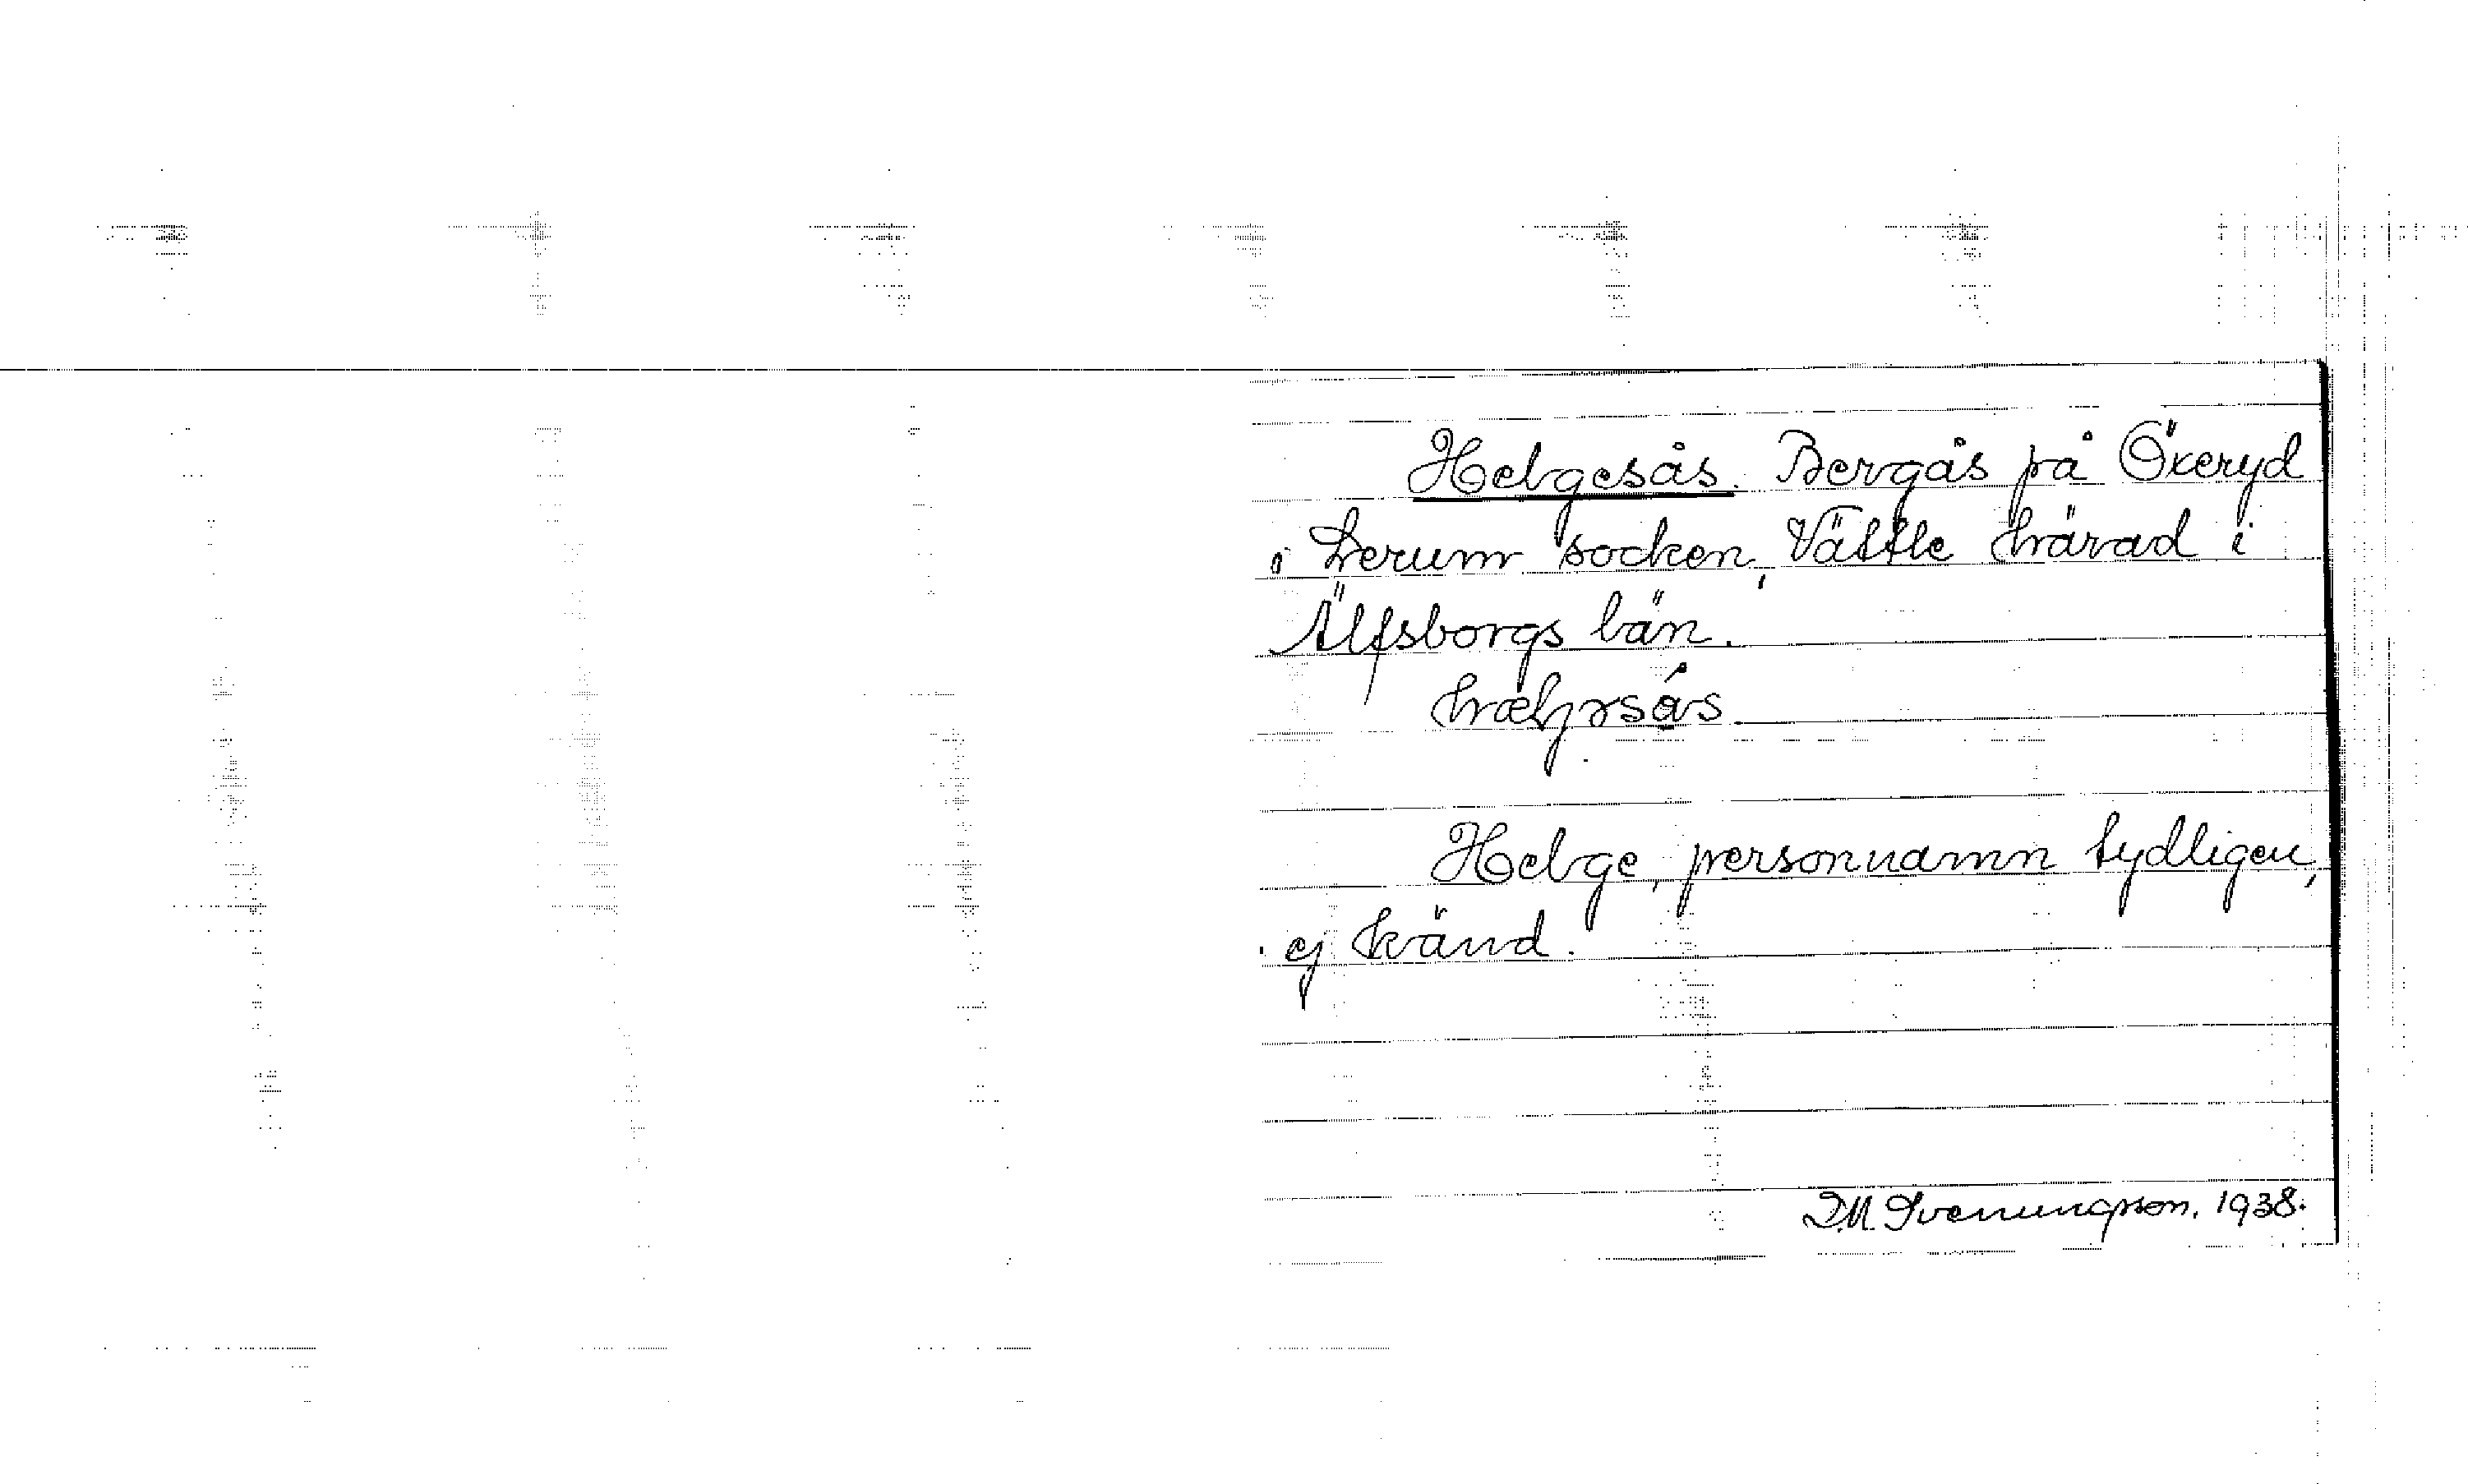 Helgesås. Bergås på Ökeryd
i Lerum socken, Vättle härad i
Älfsborgs län.
hælgɤsås
Helge, personnamn tydligen,
ej känd.
D.M. Svenungsson. 1938.